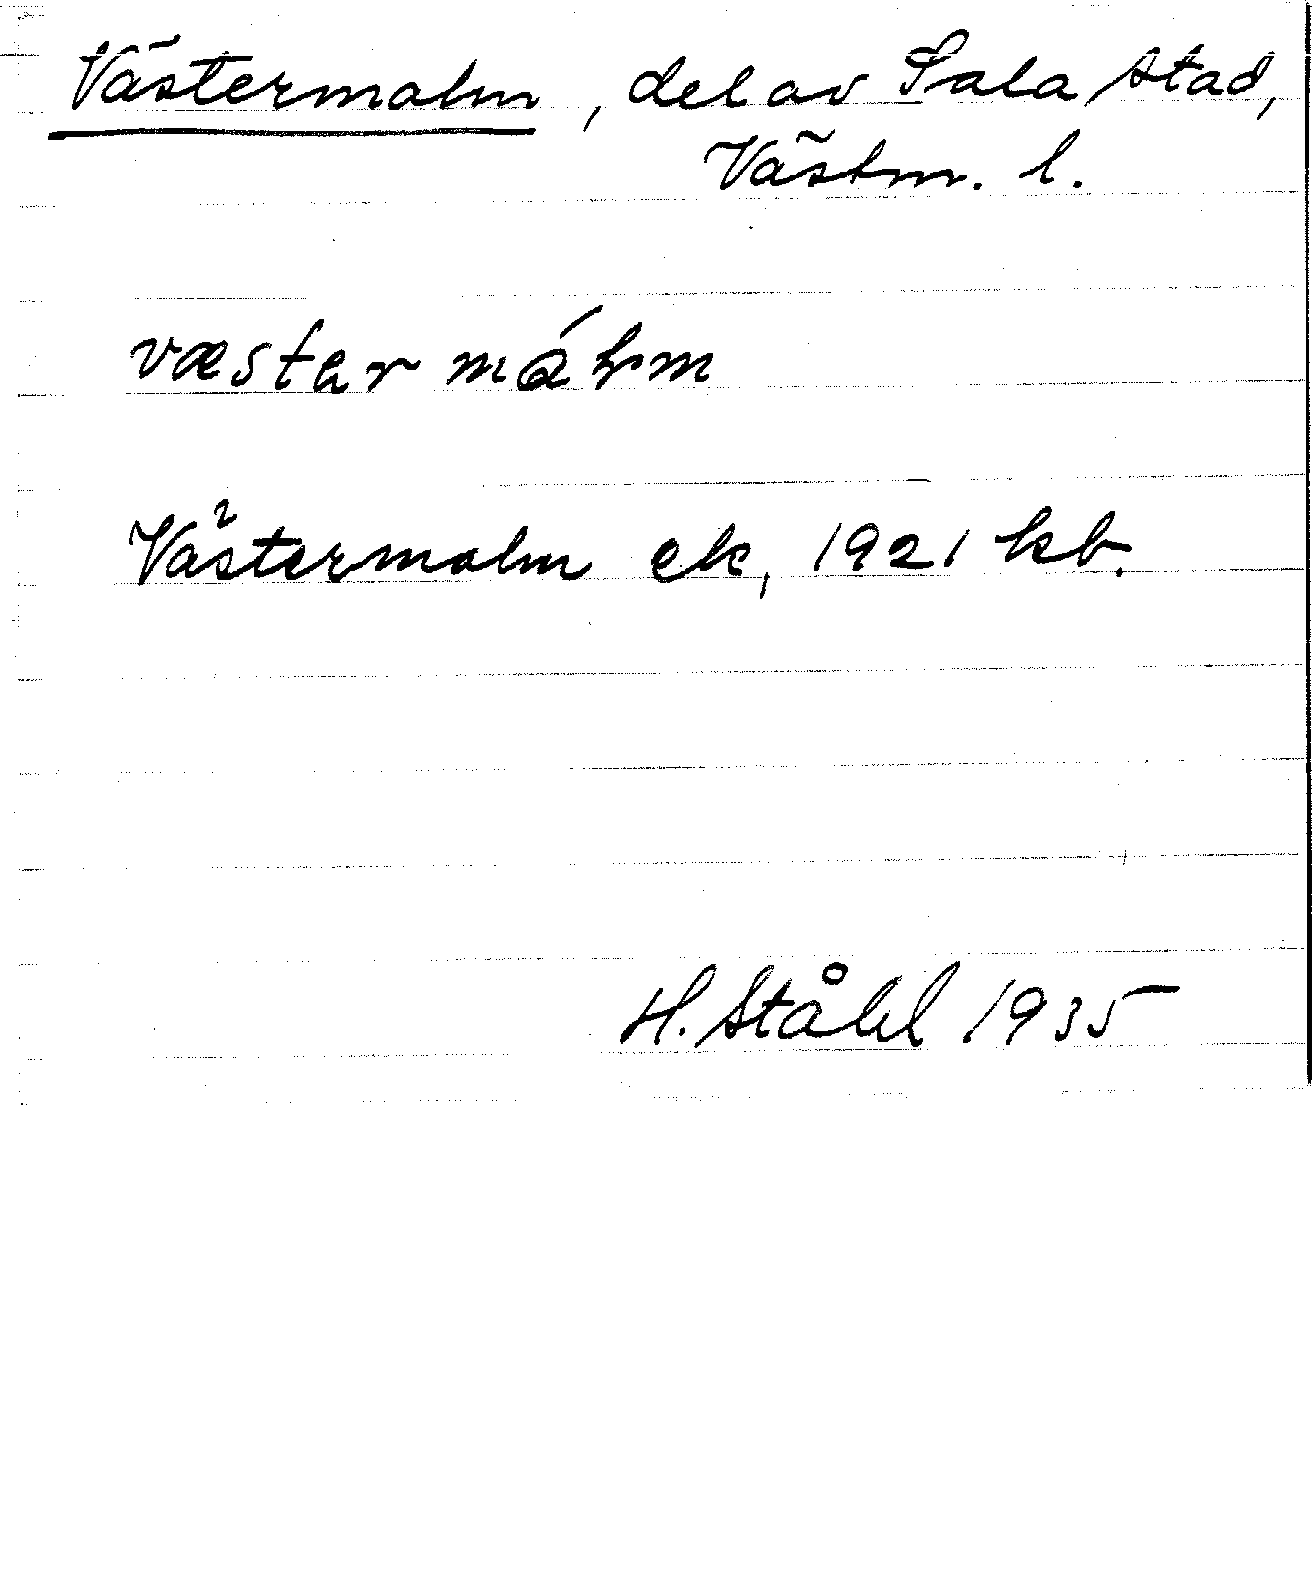 Västermalm, del av Sala stad,
Västm. l.
væstər
Västermalm ek, 1921 kb.
H. Ståhl 1935